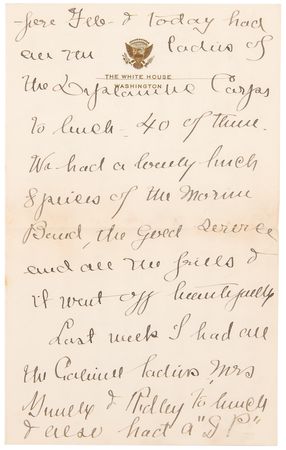 here Feb - & today had
all the ladies of
THE WHITE HOUSE
WASHINGTON
the Diplomatic Corps
to lunch - 40 of them.
We had a lovely lunch
8 pieces of the Marine
Band, the good service
and all the frills &
it went off beautifully
Last week I had all
the Cabinet ladies, Mrs
& Ridley to lunch
& also had a "D P"